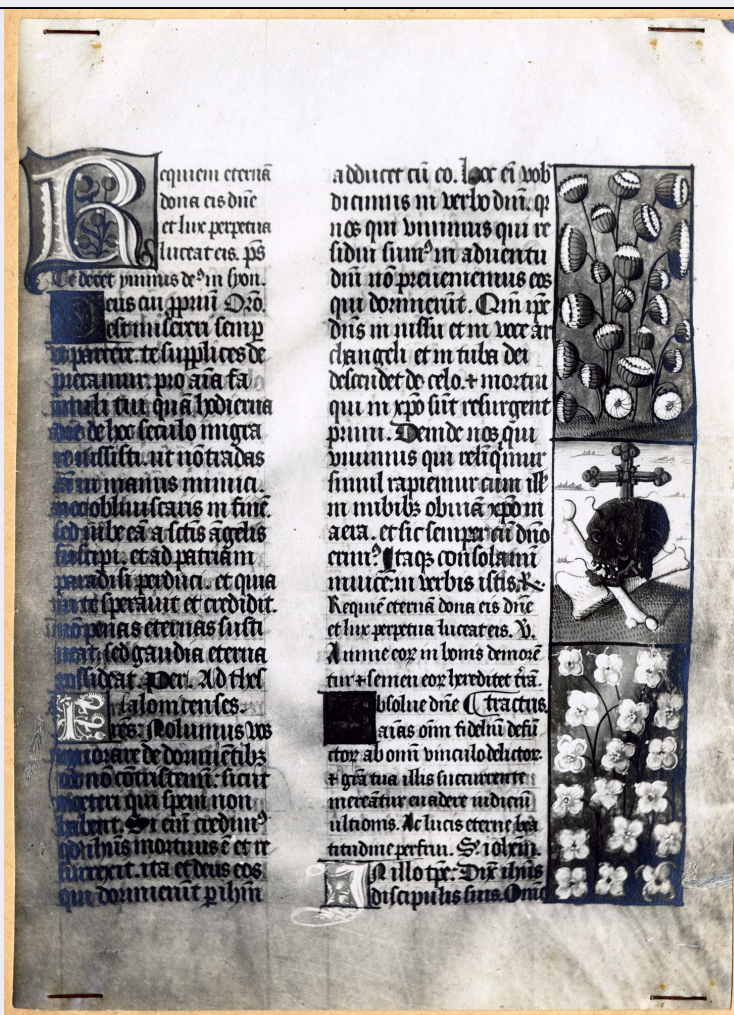 Requiem eternā
dona eis dn̄e
et lux perpetua
luceat eis. ps̄
Te decet ymnus deꝰ in syon.
Deus cui ꝓpriū Orō.
est misereri semp
et parcere. te supplices de
precamur. pro aīa fa
muli tui. quā hodierna
die de hoc seculo migra
re iussisti. ut nō tradas
eā in manus inimici.
nec obliuiscaris in finē.
sed iube eā a sctis āgelis
suscipi. et ad patriam
paradisi perduci. et quia
in te sperauit et credidit.
nō penas eternas susti
neat. sed gaudia eterna
possideat. Per. Ad thes
salonicenses.
Fr̄es: Nolumus vos
ignorare de dormiētibꝫ
ut nō cōtristemī: sicut
et ceteri qui spem non
habent. Si em̄ credimꝰ
qd̄ ihūs mortuus ē et re
surrexit. ita et deus eos
qui dormierūt p ihm̄
adducet cū eo. Hoc em̄ vob̄
dicimus in verbo dnī. qꝛ
nos qui viuimus qui re
sidui sumꝰ in aduentū
dnī nō preueniemus eos
qui dormierūt. Qm̄ ipē
dn̄s in iussu et in voce ar
changeli et in tuba dei
descendet de celo. ⁊ mortui
qui in xp̄o sūt resurgent
primi. Deinde nos qui
viuimus qui relīquimur
simul rapiemur cum ill̄
in nubibꝫ obuiā xp̄o in
aera. et sic semper cū dn̄o
erimꝰ. Itaqꝫ consolamī
inuicem in verbis istis. R̄.
Requiē eternā dona eis dn̄e
et lux perpetua luceat eis. V̄.
Anime eoꝝ in bonis demorē
tur ⁊ semen eoꝝ hereditet t̄rā.
Absolue dn̄e Tractus.
aīas oīm fideliū defū
ctoꝝ ab omī vinculo delictoꝝ.
⁊ gr̄a tua illis succurrente
mereātur euadere iudiciū
ultionis. Ac lucis eterne bea
titudine perfrui. S. iohem.
IN illo tp̄e: Dix̄ ihūs
discipulis suis. Omē